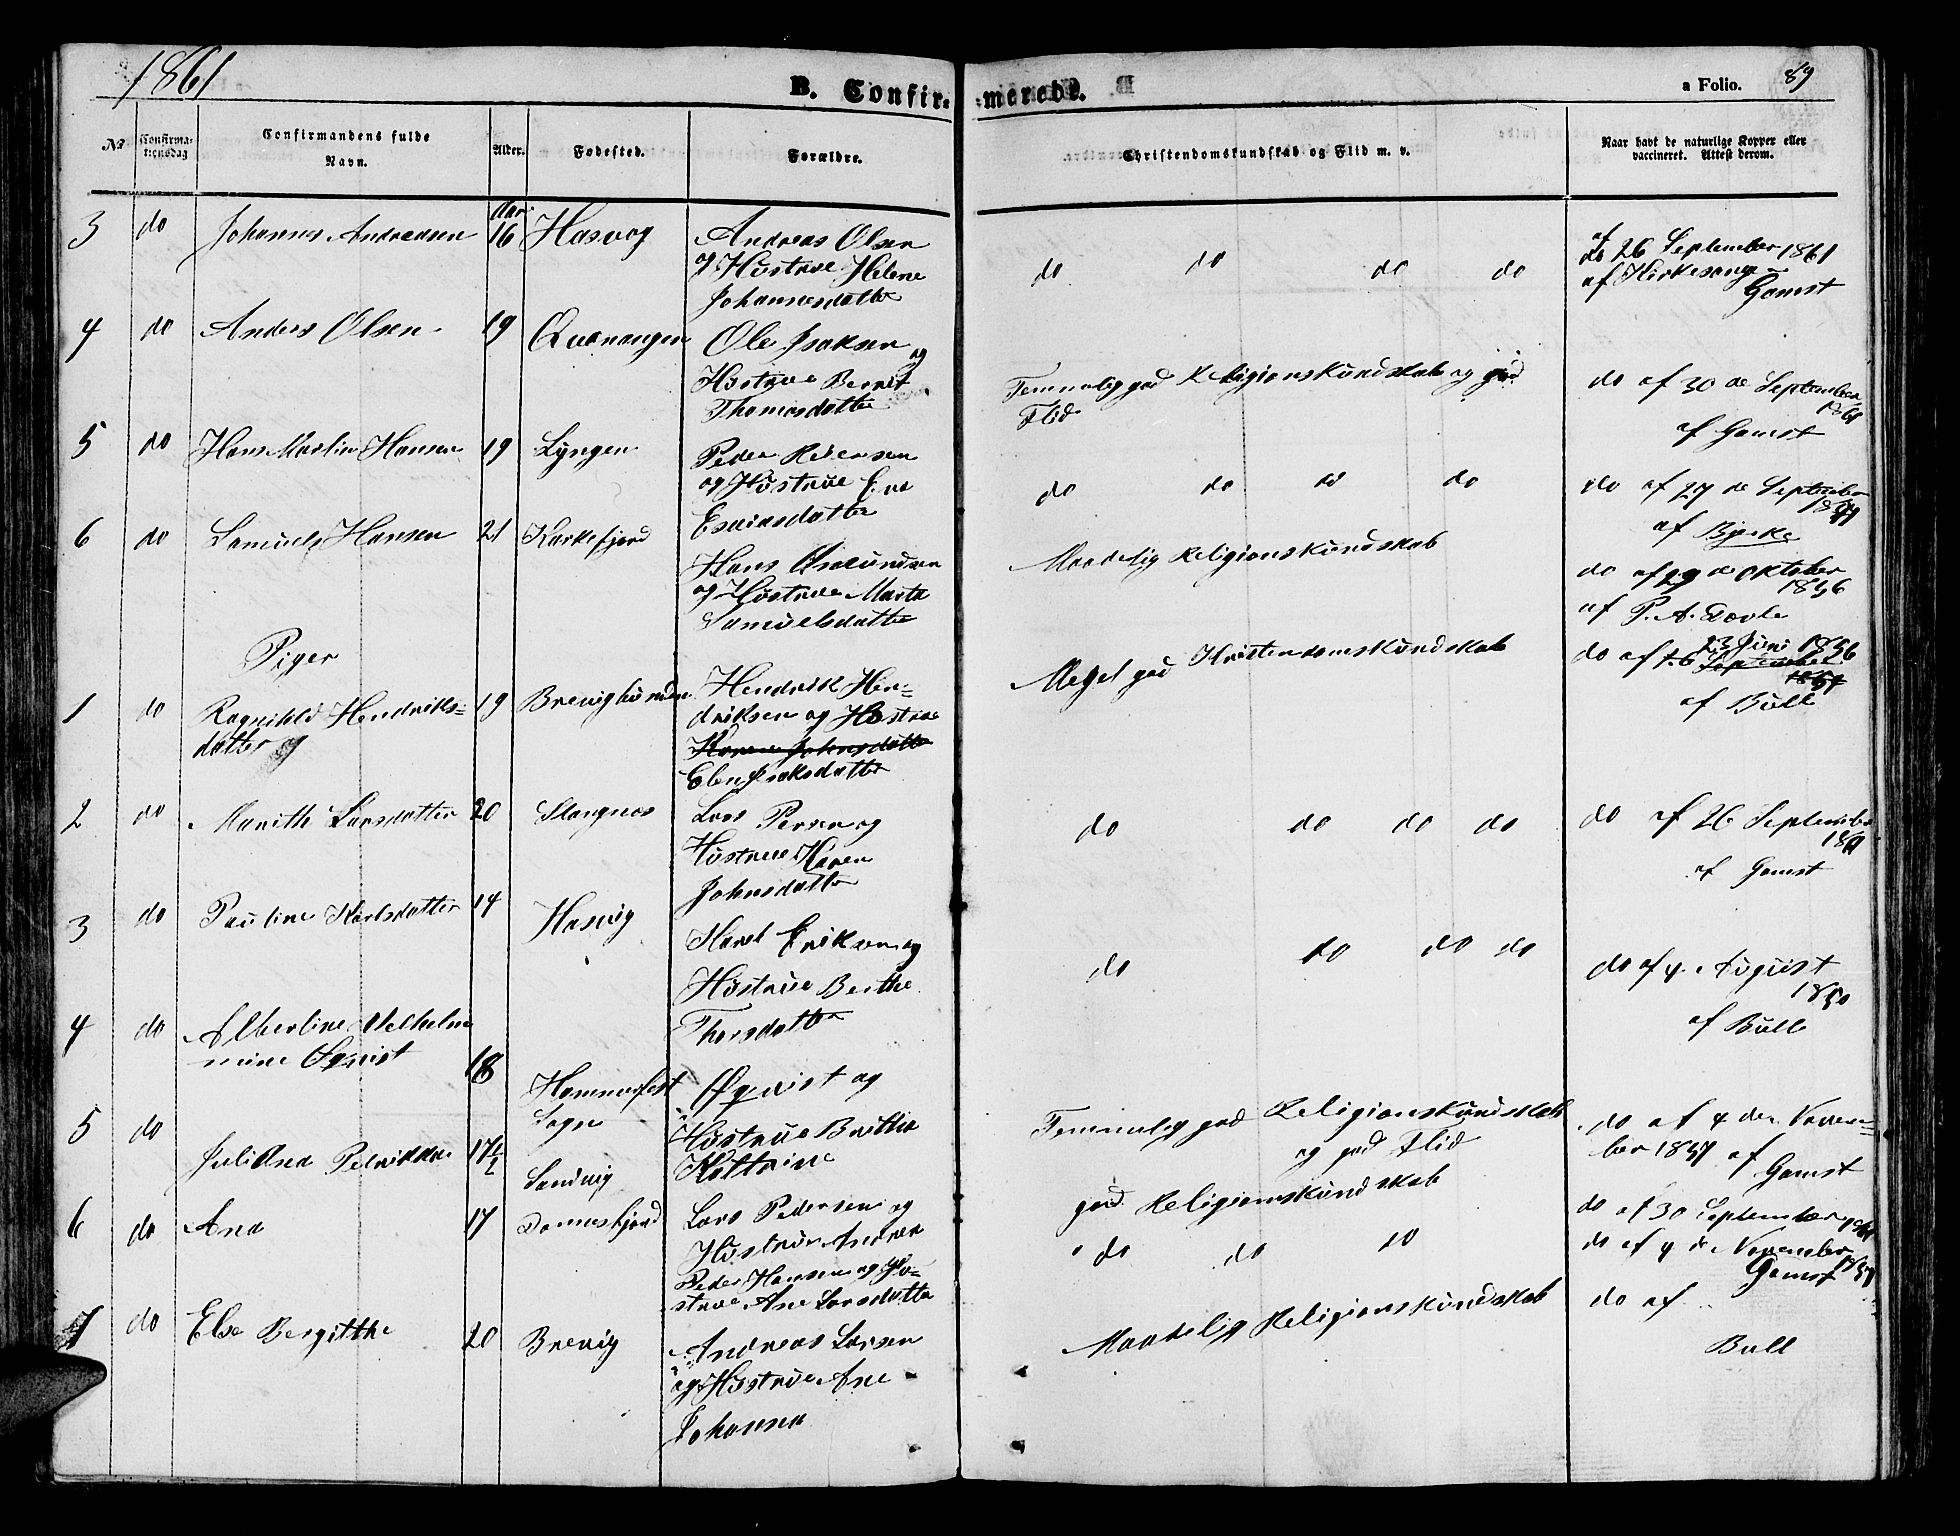 1861
B. Confir-
meredе.
a Folio.
89
No
Confirma-
tionsdag
Confirmandens fulde
Navn.
Alder.
Fødested.
Forældre.
Christendomskundskab og Flid m. v.
Naar havt de naturlige Kopper eller
vaccineret. Attest derom.
3 do Johannes Andreasen 16 Hasvog
Andreas Olsen
og Hustrue Helene
Johannesdatter
do do do do
26 September 1861
af Kirkesanger
Gamst
4 do Anders Olsen 19 Quænangen
Ole Isaksen
og
Hustrue Berret
Thomasdatter
Temmelig god Religionskundskab og god
Flid
do af 30 de September
1861
af Gamst
5 do Hans Martin Hansen 19 Lyngen
Peder Pedersen
og Hustrue
Esaiasdatter
do do do do
do af 27 de September
af Bjerke
6 do Samuel Hansen 21
Hans
og Hustrue Marit
Samuelsdatter
Maadelig Religionskundskab
do af 29 de Oktober
1856
af P. A.
Piger
1 do Ragnild Hendriks-
datter 19
Hendrik Hen-
driksen og Hustrue
Karen Johnsdatter
Elen Isaksdatter
Meget god Kristendomskundskab
do af 13 Juni 1856
September
af Bull
2 do Marith Larsdatter 20 Slangnes
Lars Persen og
Hustrue Karen
Johnsdatter
do do do do
do af 26 September
1861
af Gamst
3 do Pauline Karlsdatter 14 Hasvig
Karel Eriksen og
Hustrue Berthe
Thorsdatter
do do do do
do af 4. August
1850
af Bull
4 do Albertine Velhelm
mine Øqvist 18 Hammerfest
Sogn
Øqvist og
Hustrue Brithe
Kattrine
Temmelig god Religionskundskab
og god Flid
do af 4 de Novem-
ber 1857 af
Gamst
5 do Juliana 17 1/2 Sandvig
Lars Pedersen og
Hustrue Andrea
god Religionskundskab
do af 30 September 1861
6 do Ana 17 Donnesfjord
Peder Hansen og Hu-
strue Ane Larsdatter
do do do
do af 4 de November
1857
Gamst
7 do Else Bergitthe 20 Brevig
Andreas Larsen
og Hustrue Ane
Johanna
Maadelig Religionskundskab
do af
Bull